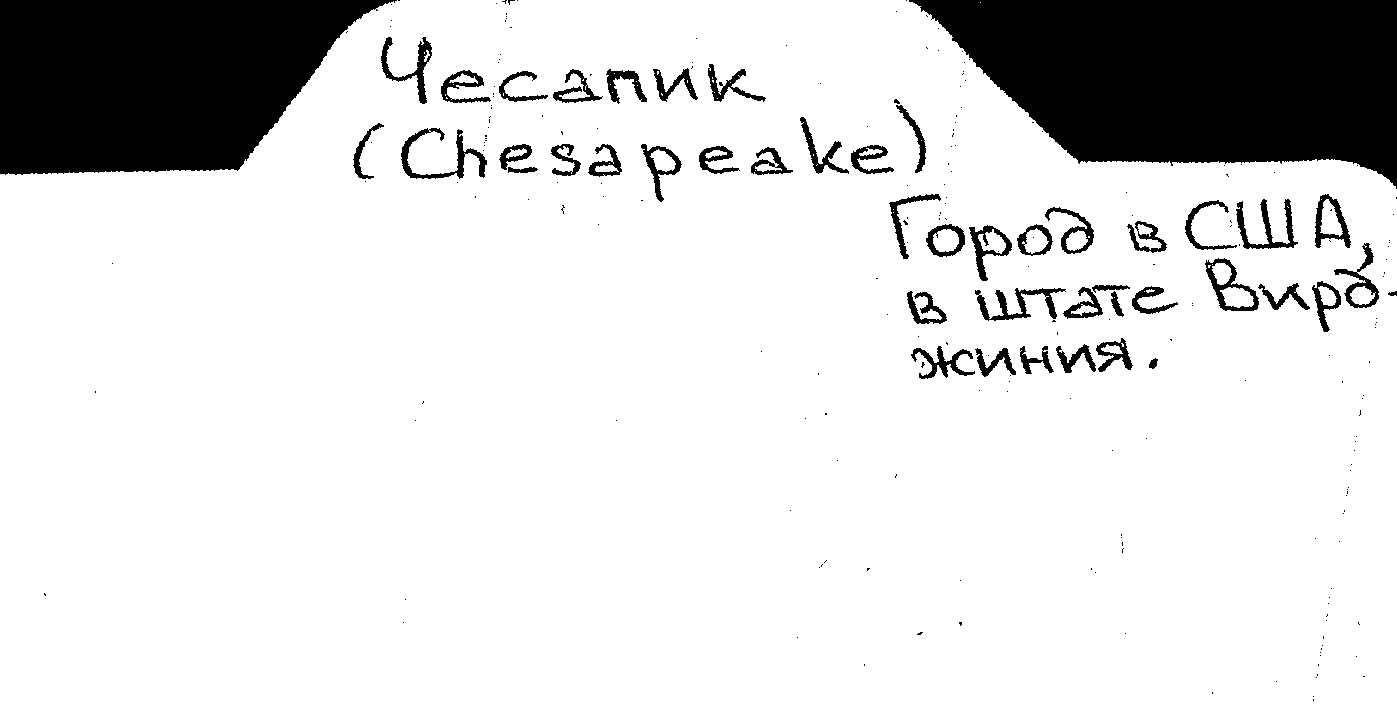 Чесапик
(Chesapeake)
Город в США,
в штате Вирд-
жиния.